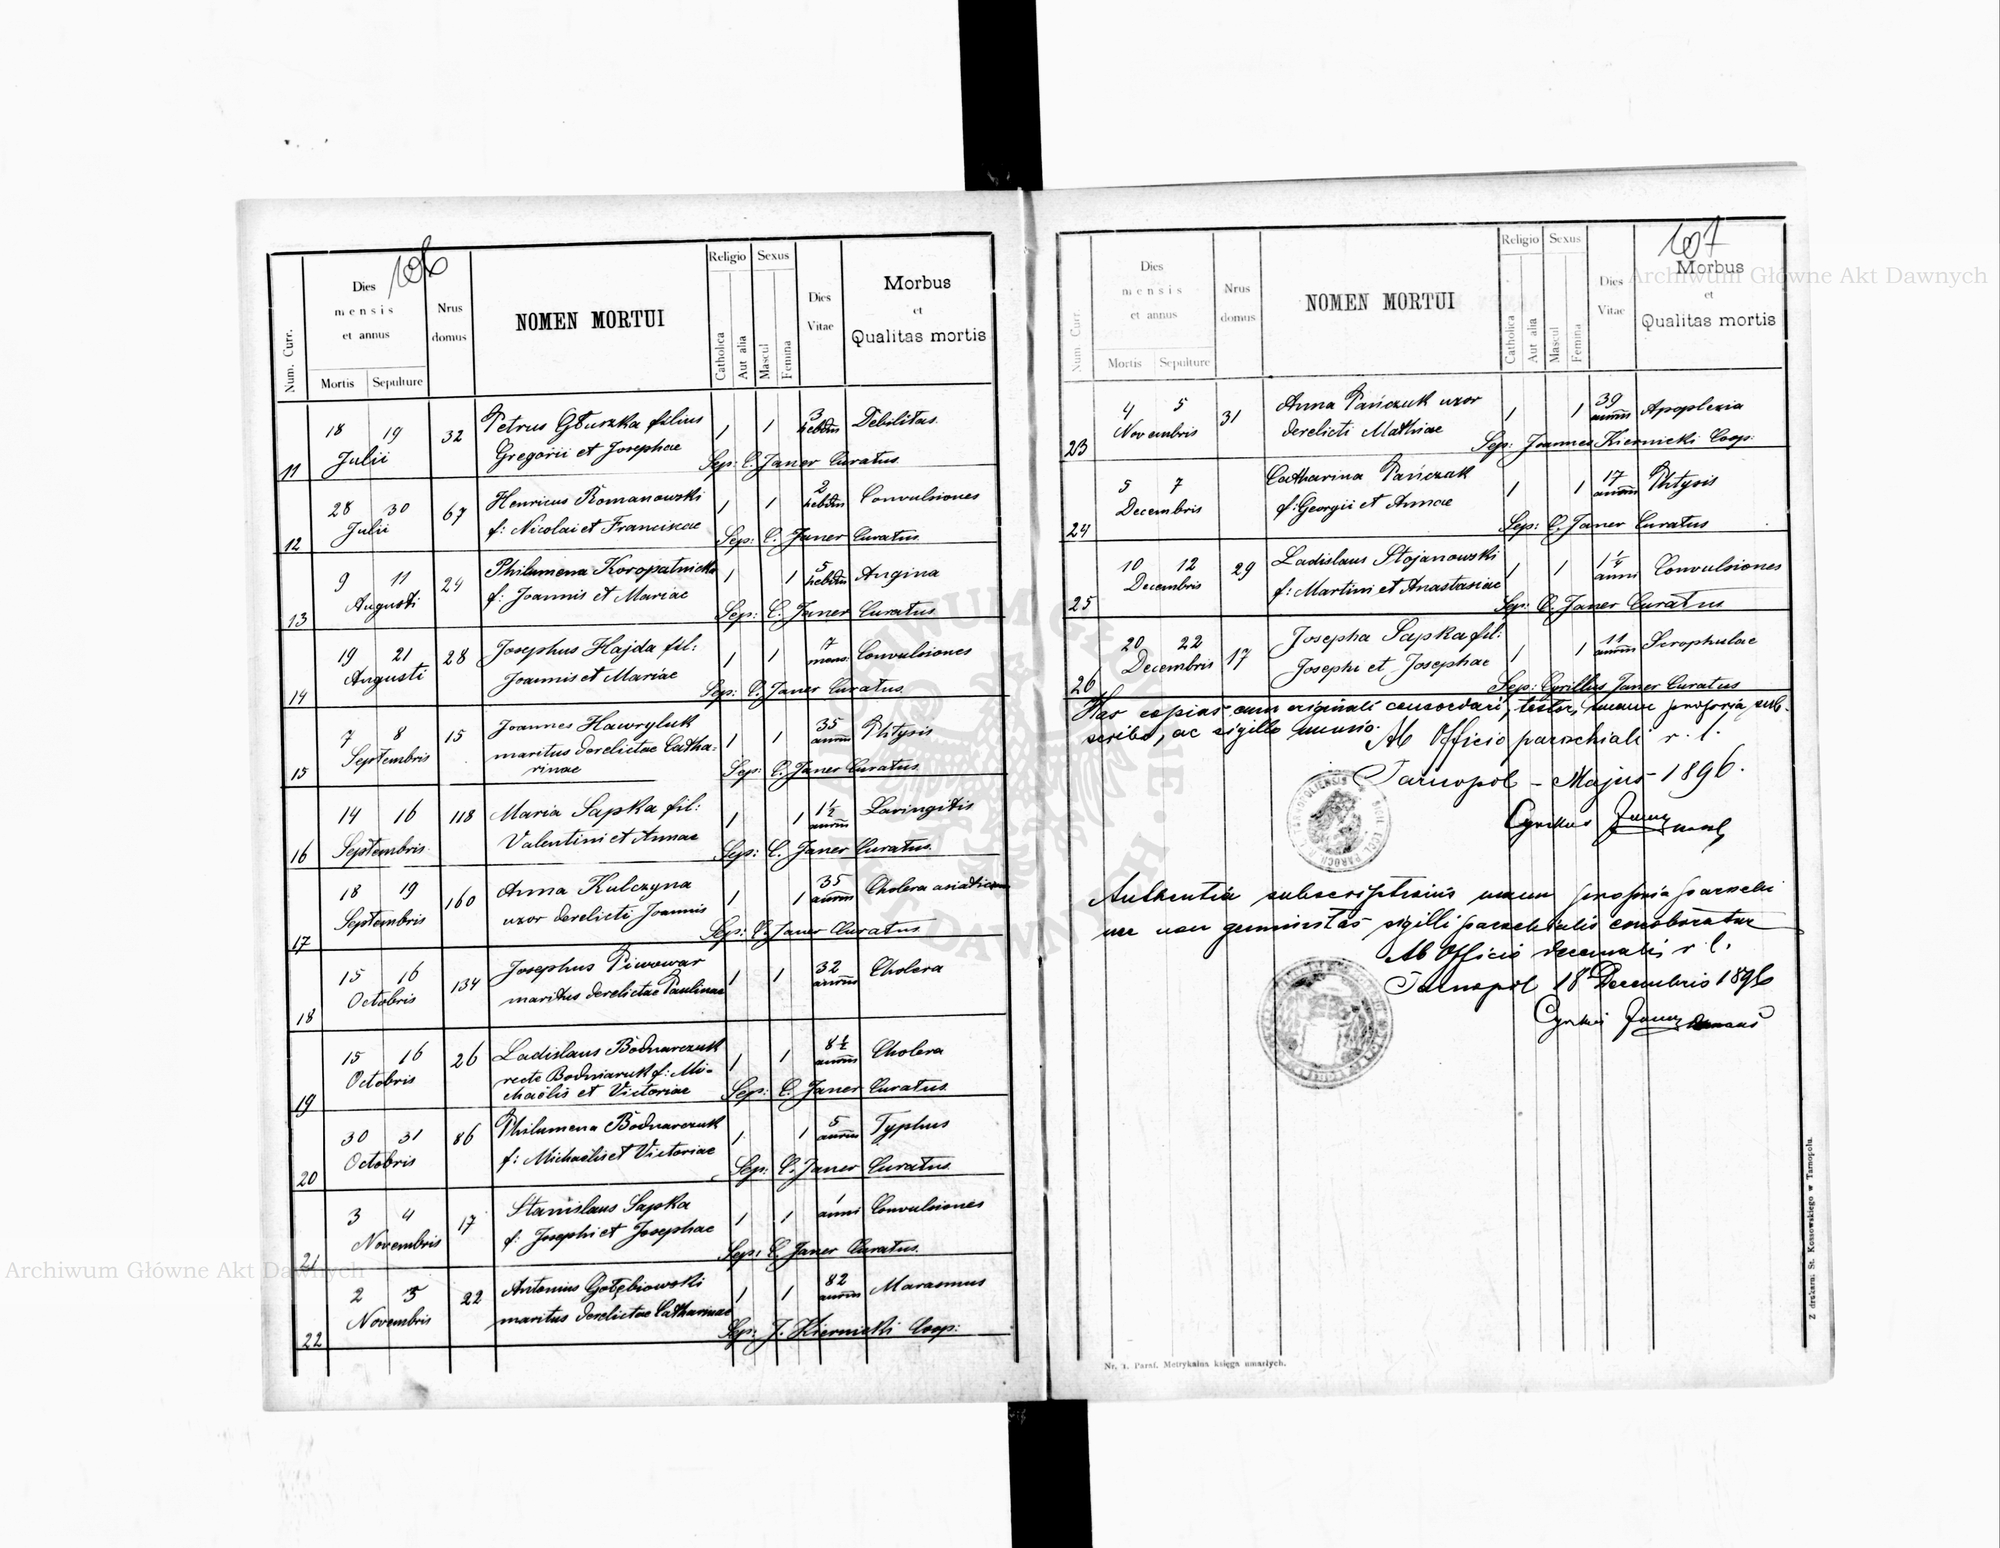 106
Num. Curr.
Dies
mensis
et annus
Mortis Sepulture
Nrus
domus
NOMEN MORTUI
Religio
Catholica
Aut alia
Sexus
Mascul
Femina
Dies
Vitae
Morbus
et
Qualitas mortis
18 19 32 Petrus Głuszka filius 1 1 3 hebdm Debilitas
11 Julii Gregorii et Josephae Sep: C. Janer Curatus.
28 30 67 Henricus Romanowski 1 1 2 hebdm Convulsiones
12 Julii f: Nicolai et Franciscae Sep: C. Janer Curatus
9 11 24 Philumena Koropatnicka 1 1 5 hebdm Angina
13 Augusti f: Joannis et Mariae Sep: C. Janer Curatus
19 21 28 Josephus Hajda fil: 1 1 7 mens: Convulsiones
14 Augusti Joannis et Mariae Sep: C. Janer Curatus.
7 8 15 Joannes Hawryluk 1 1 35 annm Phtysis
Septembris maritus derelictae Catha-
15 rinae Sep: C. Janer Curatus
14 16 118 Maria Sapka fil: 1 1 1½ annm Laringitis
16 Septembris Valentini et Annae Sep: C. Janer Curatus.
18 19 160 Anna Kulczyna 1 1 35 annm Cholera asiatica
17 Septembris uxor derelicti Joannis Sep: C. Janer Curatus
15 16 134 Josephus Piwowar 1 1 32 annm Cholera
18 Octobris maritus derelictae Paulinae
15 16 26 Ladislaus Bodnarczuk 1 1 8½ annm Cholera
Octobris recte Bodniaruk f: Mi-
19 chaëlis et Victoriae Sep: C. Janer Curatus
30 31 86 Philumena Bodnarczuk 1 1 5 annm Typhus
20 Octobris f: Michaelis et Victoriae Sep: C. Janer Curatus
3 4 17 Stanislaus Sapka 1 1 1 anni Convulsiones
21 Novembris f: Josephi et Josephae Sep: C. Janer Curatus.
2 5 22 Antonius Gołębiowski 1 1 82 annm Marasmus
22 Novembris maritus derelictae Catharinae Sep: J. Kiernicki Coop:
107
Num. Curr.
Dies
mensis
et annus
Mortis Sepulture
Nrus
domus
NOMEN MORTUI
Religio
Catholica
Aut alia
Sexus
Mascul
Femina
Dies
Vitae
Morbus
et
Qualitas mortis
4 5 31 Anna Pańczuk uxor 1 1 39 annm Apoplexia
23 Novembris derelicti Mathiae Sep: Joannes Kiernicki Coop:
5 7 Catharina Pańczak 1 1 17 annm Phtysis
24 Decembris f: Georgii et Annae Sep: C. Janer Curatus
10 12 29 Ladislaus Stojanowski 1 1 1¼ anni Convulsiones
25 Decembris f: Martini et Anastasiae Sep: C. Janer Curatus
20 22 17 Josepha Sapka fil: 1 1 11 annm Scrophulae
26 Decembris Josephi et Josephae Sep: Cyrillus Janer Curatus
Has copias cum originali concordari, testor, manu propria sub-
scribo, ac sigillo munio.
Ab Officio parochiali r. l.
Tarnopol – Majus – 1896.
Cyrillus Janer
Authentia subscriptionis manu propria parochi
nec non genuinitas sigilli parochialis conoboratur
Ab Officio decanali r. l.
Tarnopol 18 Decembris 1896
Cyrillus Janer
Nr. 1. Paraf. Metrykalna księga umarłych.
Z drukarni St. Kossowskiego w Tarnopolu.
Archiwum Główne Akt Dawnych
Archiwum Główne Akt Dawnych